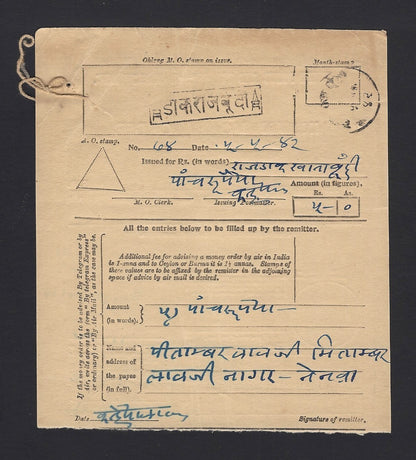 Oblong M. O. stamp on issue.
Month-stamp
डाकराजबूंदी
M. O. stamp.
No. 68 Date ५-५-४२
Issued for Rs. (in words) राजडाकखाना बूंदी
पांच रुपैया
Amount (in figures).
M. O. Clerk.
Issuing Postmaster.
Rs. As.
५-०
All the entries below to be filled up by the remitter.
Additional fee for advising a money order by air in India
is 1 anna and to Ceylon or Burma it is 1½ annas. Stamps of
these values are to be affixed by the remitter in the adjoining
space if advice by air mail is desired.
If the money order is to be advised by Telegram or by
Air, write above the form "By Telegram Express"
or ordinary) or "By Air Mail", as the case may be.
Amount
(in words).
५) पांच रुपैया
Name and
address of
the payee
(in full).
पीताम्बर
नागर - नैनवा
Date
Signature of remitter.